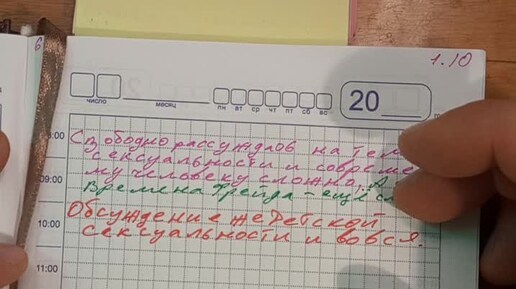 6
1.10
число месяц пн вт ср чт пт сб вс 20
8:00
Свободно рассуждать на тем
сексуальности и совреме
му человеку сложно, а
09:00
Времена Фрейда - ещё сл
Обсуждение же детской
10:00
сексуальности и вовся.
11:00